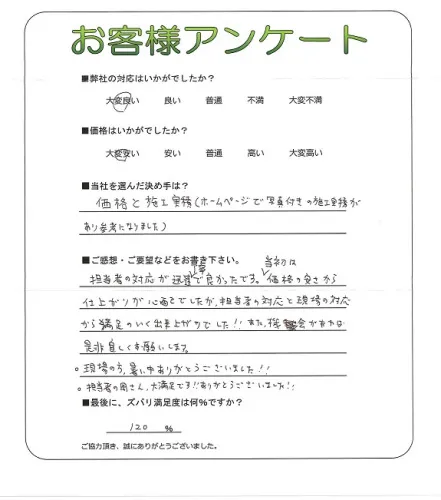 お客様アンケート
■弊社の対応はいかがでしたか?
大変良い 良い 普通 不満 大変不満
■価格はいかがでしたか?
大変安い 安い 普通 高い 大変高い
■当社を選んだ決め手は?
価格と施工実積(ホームページで写真付きの施工実積が
あり参考になりました)
■ご感想・ご要望などをお書き下さい。
当初は
担当者の対応が迅速で良かったです。価格の安さから
仕上がりが心配でしたが、担当者の対応と現場の対応
から満足のいく出来上がりでした!!また、機会があれば
是非宜しくお願いします。
。現場の方、暑い中ありがとうございました!!
。担当者の岡さん、大満足です!!ありがとうございました!!
■最後に、ズバリ満足度は何%ですか?
120 %
ご協力頂き、誠にありがとうございました。